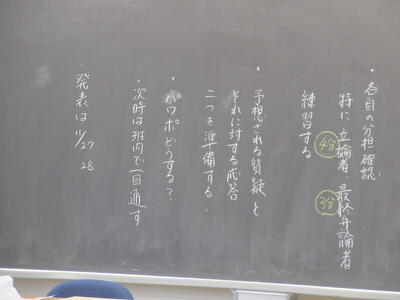 ・各自の分担確認
特に立論者、最終弁論者
4分 3分
練習する
・予想される質疑と
それに対する応答
二つを準備する。
・パワポどうする?
・次時は班内で一回通す
・発表は 11/27
28